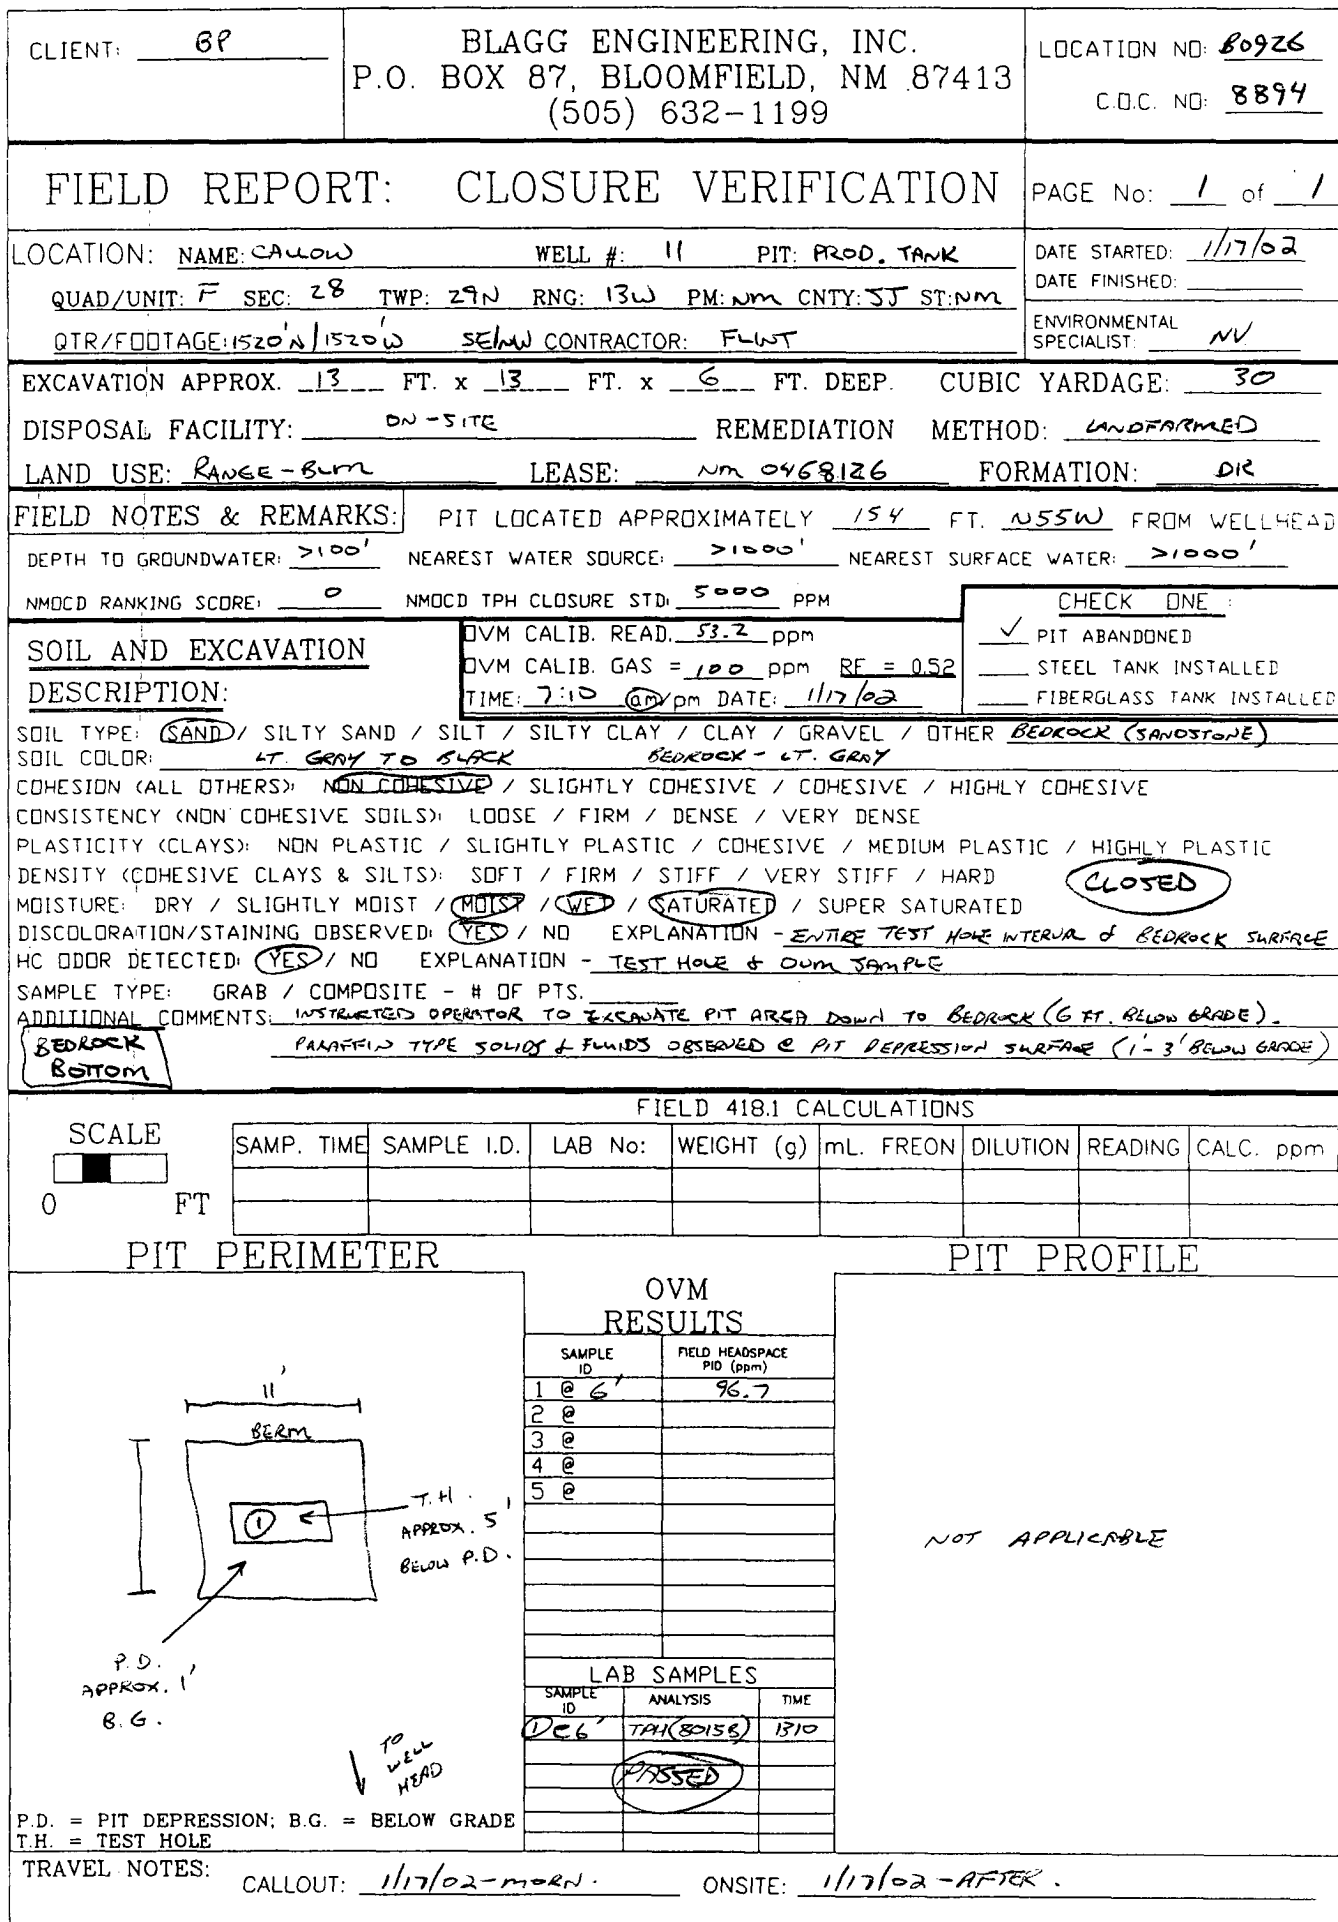 CLIENT: BP
BLAGG ENGINEERING, INC.
P.O. BOX 87, BLOOMFIELD, NM 87413
(505) 632-1199
LOCATION NO: B0926
C.O.C. NO: 8894
FIELD REPORT: CLOSURE VERIFICATION
PAGE No: 1 of 1
LOCATION: NAME: CALLOW WELL #: 11 PIT: PROD. TANK
QUAD/UNIT: F SEC: 28 TWP: 29N RNG: 13W PM: NM CNTY: SJ ST: NM
QTR/FOOTAGE: 1520'N/1520'W SE/NW CONTRACTOR: FLINT
DATE STARTED: 1/17/02
DATE FINISHED:
ENVIRONMENTAL
SPECIALIST: NV
EXCAVATION APPROX. 13 FT. x 13 FT. x 6 FT. DEEP. CUBIC YARDAGE: 30
DISPOSAL FACILITY: ON-SITE REMEDIATION METHOD: LANDFARMED
LAND USE: RANGE-BLM LEASE: NM 0468126 FORMATION: DK
FIELD NOTES & REMARKS: PIT LOCATED APPROXIMATELY 154 FT. N55W FROM WELLHEAD
DEPTH TO GROUNDWATER: >100' NEAREST WATER SOURCE: >1000' NEAREST SURFACE WATER: >1000'
NMOCD RANKING SCORE: 0 NMOCD TPH CLOSURE STD: 5000 PPM
CHECK ONE :
✓ PIT ABANDONED
STEEL TANK INSTALLED
FIBERGLASS TANK INSTALLED
SOIL AND EXCAVATION
DESCRIPTION:
OVM CALIB. READ. 53.2 ppm
OVM CALIB. GAS = 100 ppm RF = 0.52
TIME: 7:10 am/pm DATE: 1/17/02
SOIL TYPE: SAND / SILTY SAND / SILT / SILTY CLAY / CLAY / GRAVEL / OTHER BEDROCK (SANDSTONE)
SOIL COLOR: LT. GRAY TO BLACK BEDROCK - LT. GRAY
COHESION (ALL OTHERS): NON COHESIVE / SLIGHTLY COHESIVE / COHESIVE / HIGHLY COHESIVE
CONSISTENCY (NON COHESIVE SOILS): LOOSE / FIRM / DENSE / VERY DENSE
PLASTICITY (CLAYS): NON PLASTIC / SLIGHTLY PLASTIC / COHESIVE / MEDIUM PLASTIC / HIGHLY PLASTIC
DENSITY (COHESIVE CLAYS & SILTS): SOFT / FIRM / STIFF / VERY STIFF / HARD
CLOSED
MOISTURE: DRY / SLIGHTLY MOIST / MOIST / WET / SATURATED / SUPER SATURATED
DISCOLORATION/STAINING OBSERVED: YES / NO EXPLANATION - ENTIRE TEST HOLE INTERVAL & BEDROCK SURFACE
HC ODOR DETECTED: YES / NO EXPLANATION - TEST HOLE & OVM SAMPLE
SAMPLE TYPE: GRAB / COMPOSITE - # OF PTS.
ADDITIONAL COMMENTS: INSTRUCTED OPERATOR TO EXCAVATE PIT AREA DOWN TO BEDROCK (6 FT. BELOW GRADE).
PARAFFIN TYPE SOLIDS & FLUIDS OBSERVED @ PIT DEPRESSION SURFACE (1'-3' BELOW GRADE)
BEDROCK
BOTTOM
FIELD 418.1 CALCULATIONS
SCALE
0 FT
SAMP. TIME SAMPLE I.D. LAB No: WEIGHT (g) mL. FREON DILUTION READING CALC. ppm
PIT PERIMETER
PIT PROFILE
OVM
RESULTS
SAMPLE ID FIELD HEADSPACE PID (ppm)
1 @ 6' 96.7
2 @
3 @
4 @
5 @
11'
BERM
1
T.H.
APPROX. 5'
BELOW P.D.
P.D.
APPROX. 1'
B.G.
TO
WELL
HEAD
NOT APPLICABLE
LAB SAMPLES
SAMPLE ID ANALYSIS TIME
1 @ 6' TPH (8015B) 1310
PASSED
P.D. = PIT DEPRESSION; B.G. = BELOW GRADE
T.H. = TEST HOLE
TRAVEL NOTES: CALLOUT: 1/17/02-MORN. ONSITE: 1/17/02-AFTER.